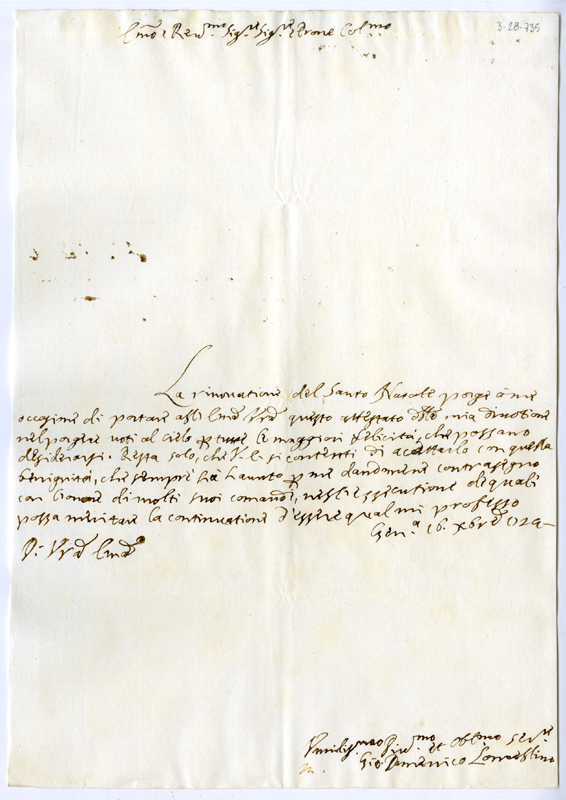 3-28-735
Ill.mo e Rev.mo Sig.re Sig.re e Prone Col.mo
La rinovatione del Santo Natale porge à me
occasione di portare à V.S. Ill.ma questo attestato della mia divotione
nel porgere voti al Cielo per tutte le maggiori felicità, che possano
desiderarsi. Resta solo, che V.S. si contenti di accettarlo con quella
benignità, che sempre hà havuto per me dandomene contrasegno
con l'onore di molti suoi comandi, nell'essecutione de quali
possa meritare la continuatione d'essere qual mi professo
Gen.a 16. Xbre
Di V.S. Ill.ma
Humiliss.mo Div.mo et Oblig.mo Ser.re
Gio: Domenico